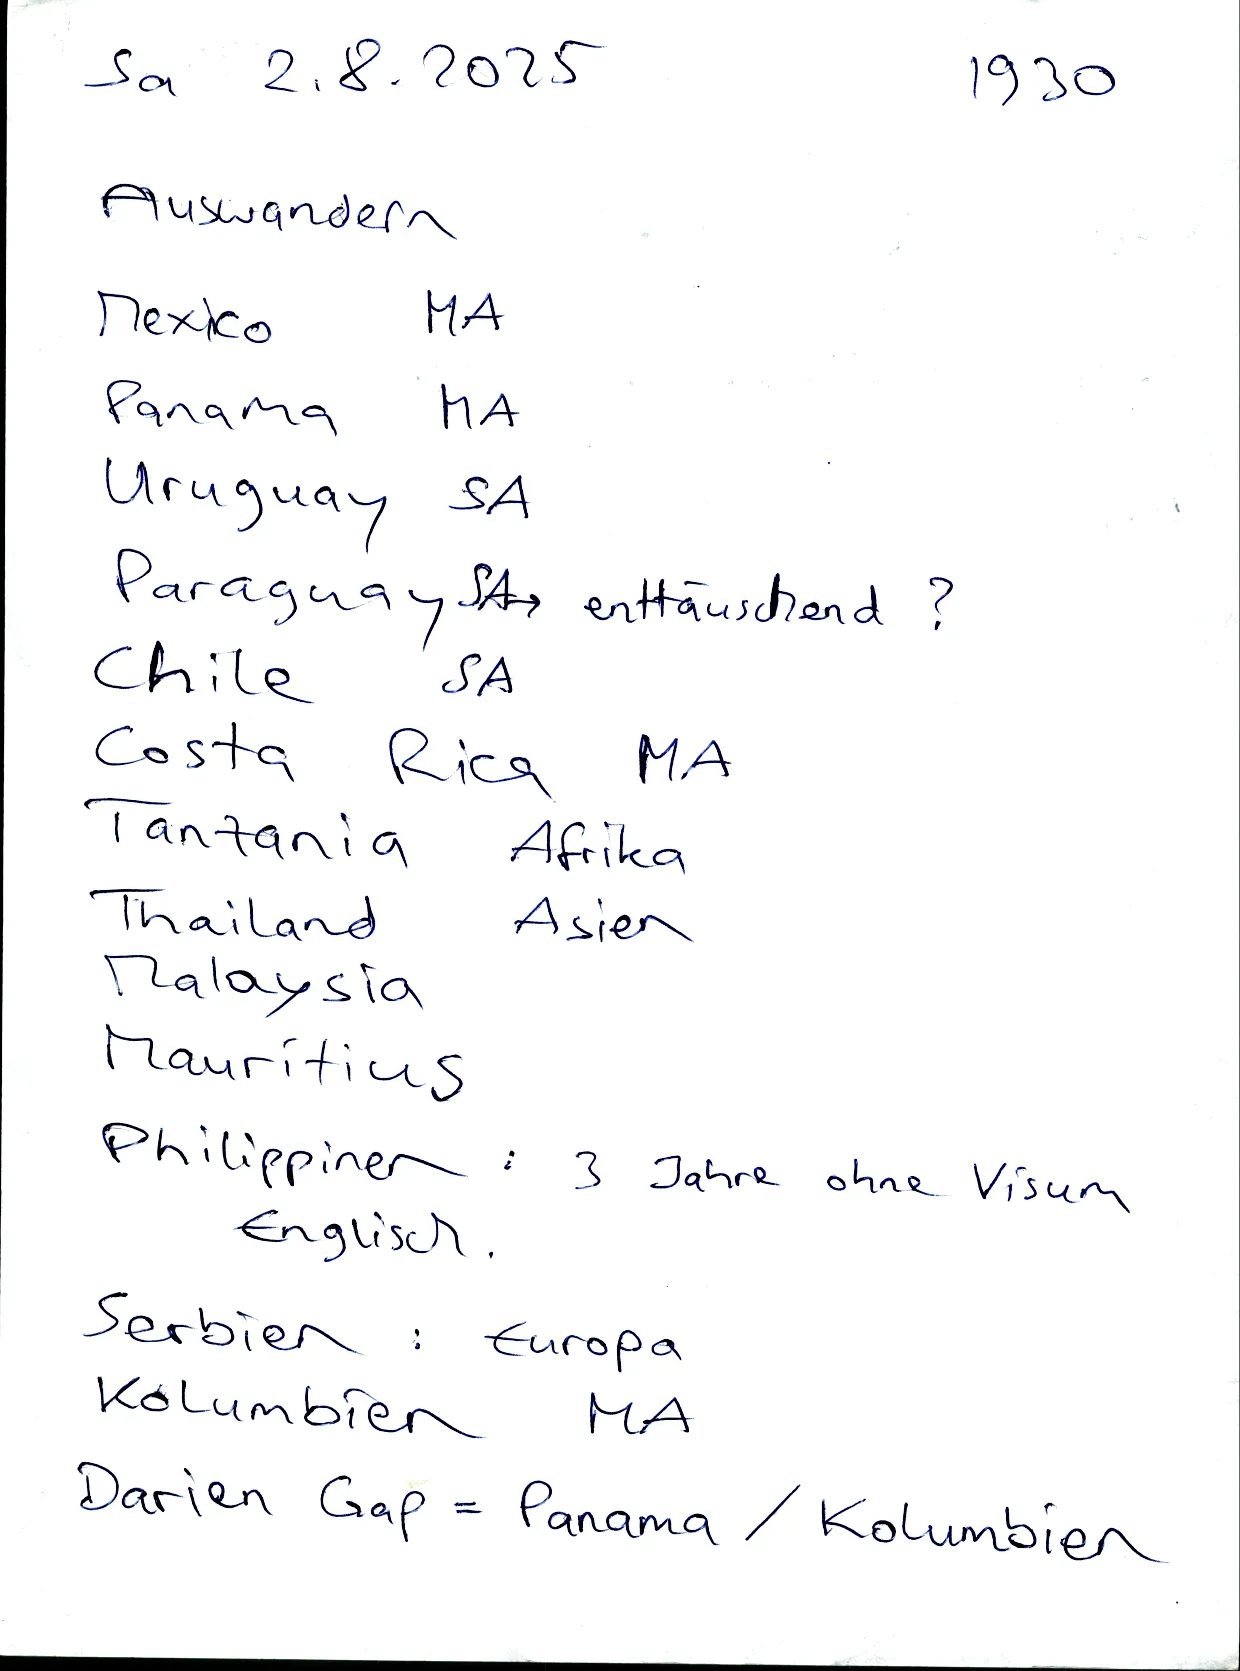 Sa 2.8.2025 1930
Auswandern
Mexico MA
Panama MA
Uruguay SA
Paraguay SA → enttäuschend ?
Chile SA
Costa Rica MA
Tanzania Afrika
Thailand Asien
Malaysia
Mauritius
Philippinen : 3 Jahre ohne Visum
Englisch.
Serbien : Europa
Kolumbien MA
Darien Gap = Panama / Kolumbien